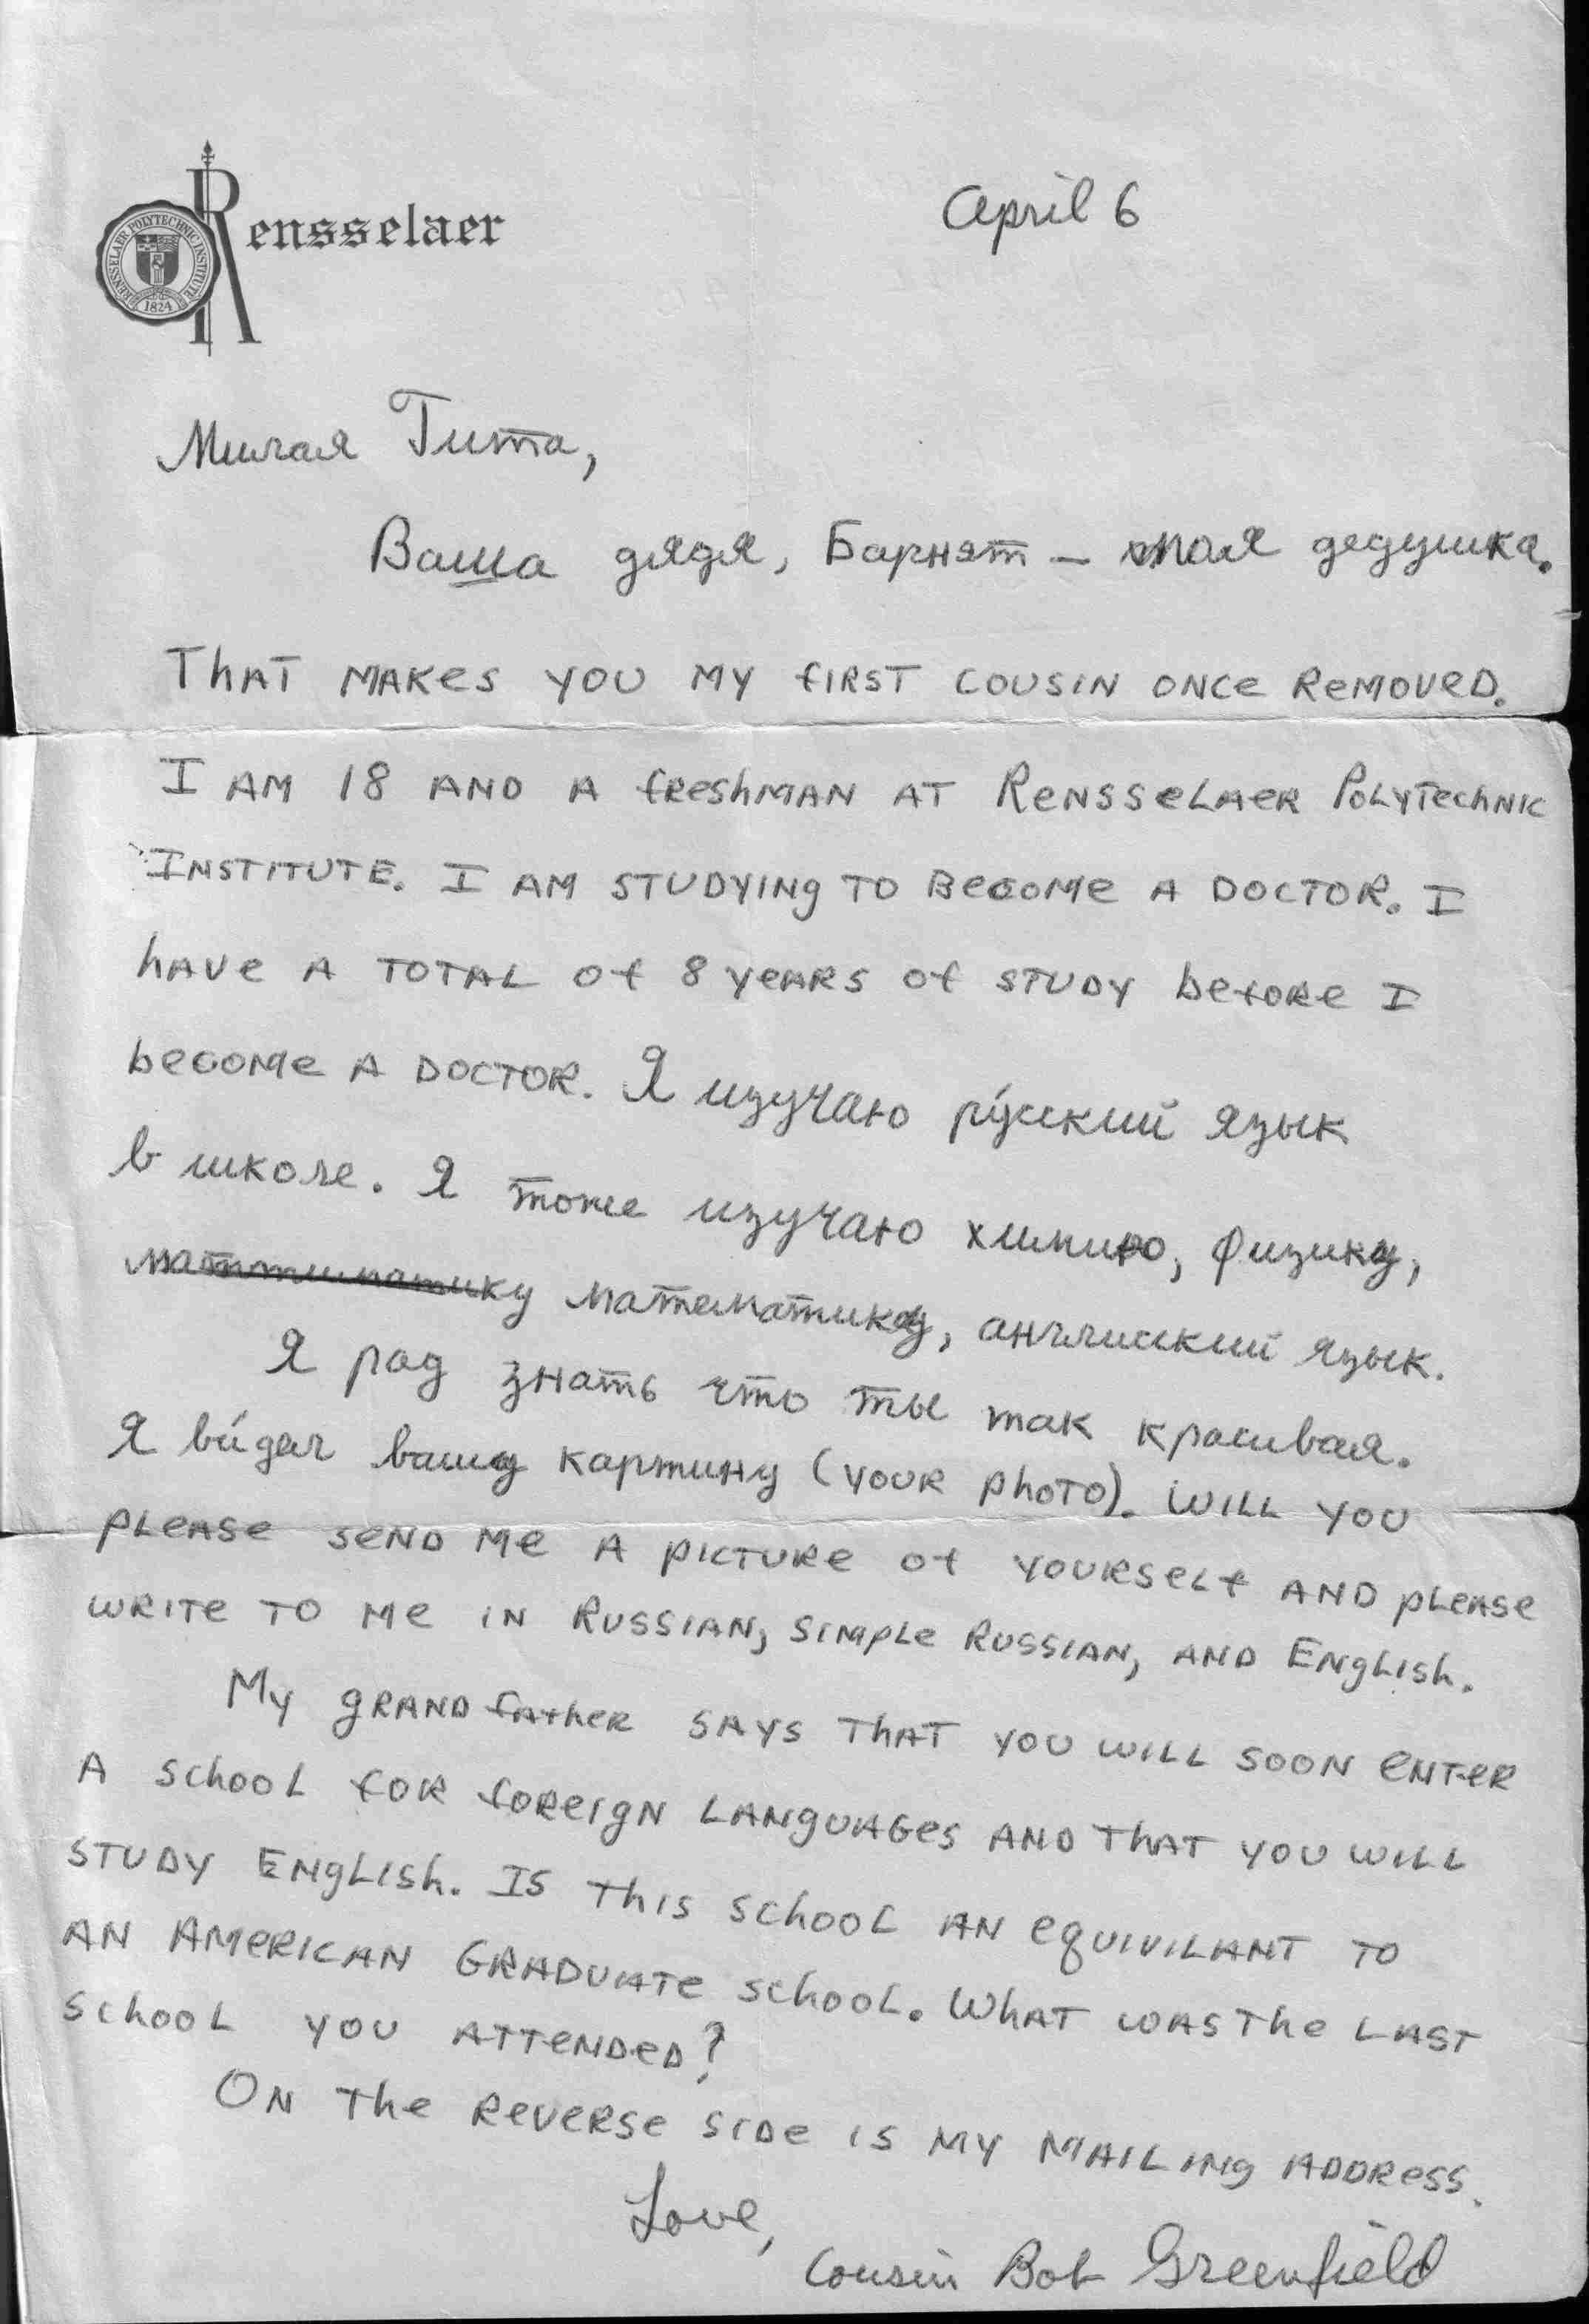 Rensselaer
RENSSELAER POLYTECHNIC INSTITUTE
1824
April 6
Милая Гита,
Ваша дядя, Барнэт – моя дедушка.
THAT MAKES YOU MY FIRST COUSIN ONCE REMOVED.
I AM 18 AND A FRESHMAN AT RENSSELAER POLYTECHNIC
INSTITUTE. I AM STUDYING TO BECOME A DOCTOR. I
HAVE A TOTAL OF 8 YEARS OF STUDY BEFORE I
BECOME A DOCTOR. Я изучаю ру́сский язык
в школе. Я тоже изучаю химию, физику,
математику, английский язык.
Я рад знать что ты так красивая.
Я ви́дал вашу картину (YOUR PHOTO). WILL YOU
PLEASE SEND ME A PICTURE OF YOURSELF AND PLEASE
WRITE TO ME IN RUSSIAN, SIMPLE RUSSIAN, AND ENGLISH.
MY GRANDFATHER SAYS THAT YOU WILL SOON ENTER
A SCHOOL FOR FOREIGN LANGUAGES AND THAT YOU WILL
STUDY ENGLISH. IS THIS SCHOOL AN EQUIVILANT TO
AN AMERICAN GRADUATE SCHOOL. WHAT WAS THE LAST
SCHOOL YOU ATTENDED?
ON THE REVERSE SIDE IS MY MAILING ADDRESS.
Love,
Cousin Bob Greenfield